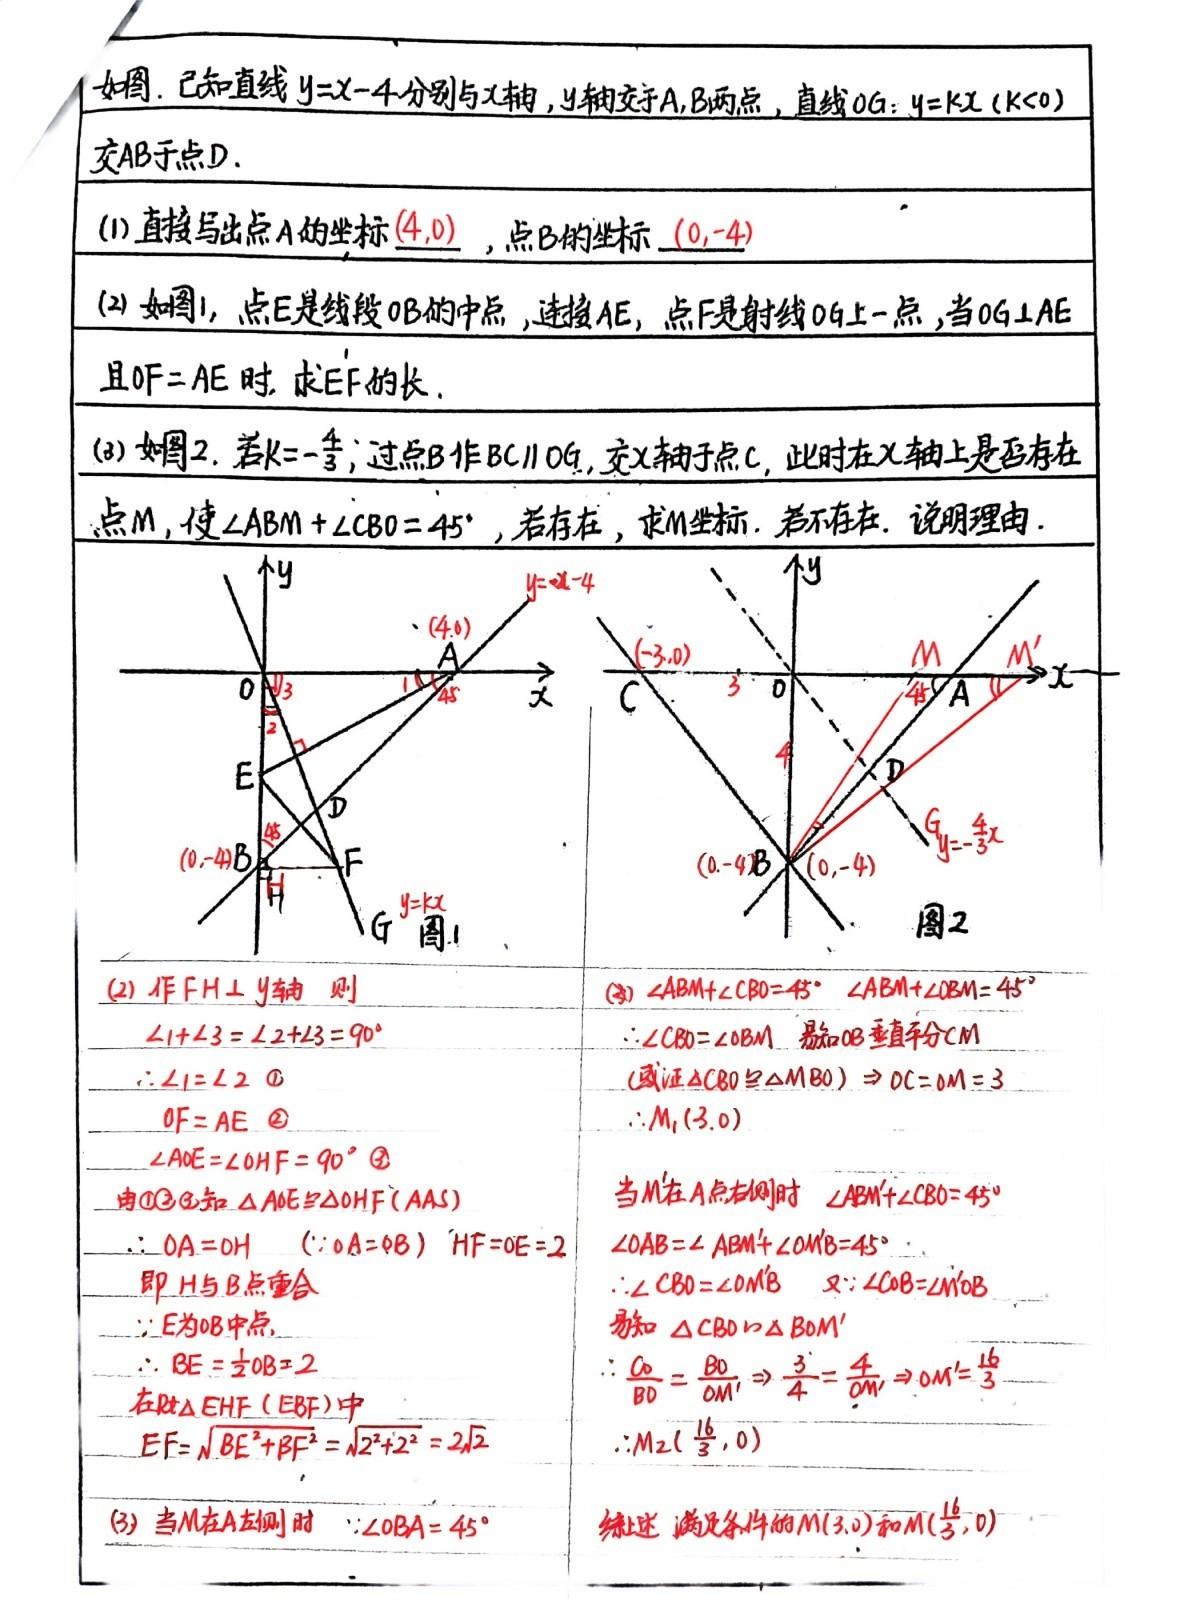 如图.已知直线y=x-4分别与x轴,y轴交于A,B两点,直线OG:y=kx(k<0)
交AB于点D.
(1)直接写出点A的坐标(4,0),点B的坐标(0,-4)
(2)如图1,点E是线段OB的中点,连接AE,点F是射线OG上一点,当OG⊥AE
且OF=AE时,求EF的长.
(3)如图2.若k=-4/3;过点B作BC∥OG,交x轴于点C,此时在x轴上是否存在
点M,使∠ABM+∠CBO=45°,若存在,求M坐标.若不存在.说明理由.
y
y=x-4
(4.0)
A
O
3
1
45
x
2
E
D
45
(0.-4)B
F
H
H
y=kx
G
图1
y
(-3.0)
M
M'
C
3
O
45
A
x
4
D
G
y=-4/3x
(0.-4)B
(0,-4)
图2
(2)作FH⊥y轴 则
∠1+∠3=∠2+∠3=90°
∴∠1=∠2 ①
OF=AE ②
∠AOE=∠OHF=90° ③
由①③②知△AOE≌△OHF(AAS)
∴OA=OH (∵OA=OB) HF=OE=2
即H与B点重合
∵E为OB中点,
∴BE=1/2OB=2
在Rt△EHF(EBF)中
EF=√BE²+BF²=√2²+2²=2√2
(3)当M在A左侧时 ∵∠OBA=45°
(3)∠ABM+∠CBO=45° ∠ABM+∠OBM=45°
∴∠CBO=∠OBM 易知OB垂直平分CM
(或证△CBO≌△MBO)⇒OC=OM=3
∴M₁(3.0)
当M'在A点右侧时 ∠ABM'+∠CBO=45°
∠OAB=∠ABM'+∠OM'B=45°
∴∠CBO=∠OM'B 又∵∠COB=∠M'OB
易知△CBO∽△BOM'
∴CO/BO=BO/OM'⇒3/4=4/OM'⇒OM'=16/3
∴M₂(16/3,0)
综上述 满足条件的M(3.0)和M(16/3,0)